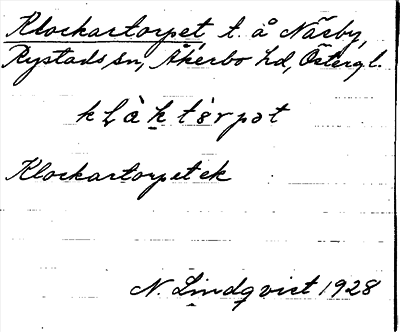 Klockartorpet t. å Närby,
Rystads sn, Åkerbo hd, Östergl.
Klockartorpet ek
N. Lindqvist 1928